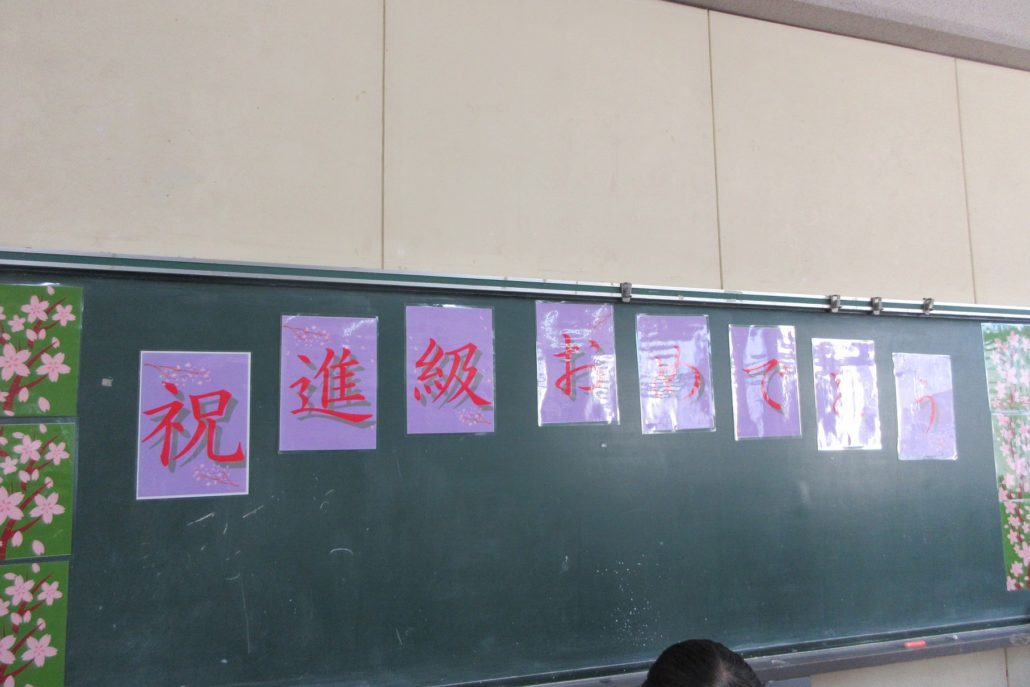 祝進級おめでとう